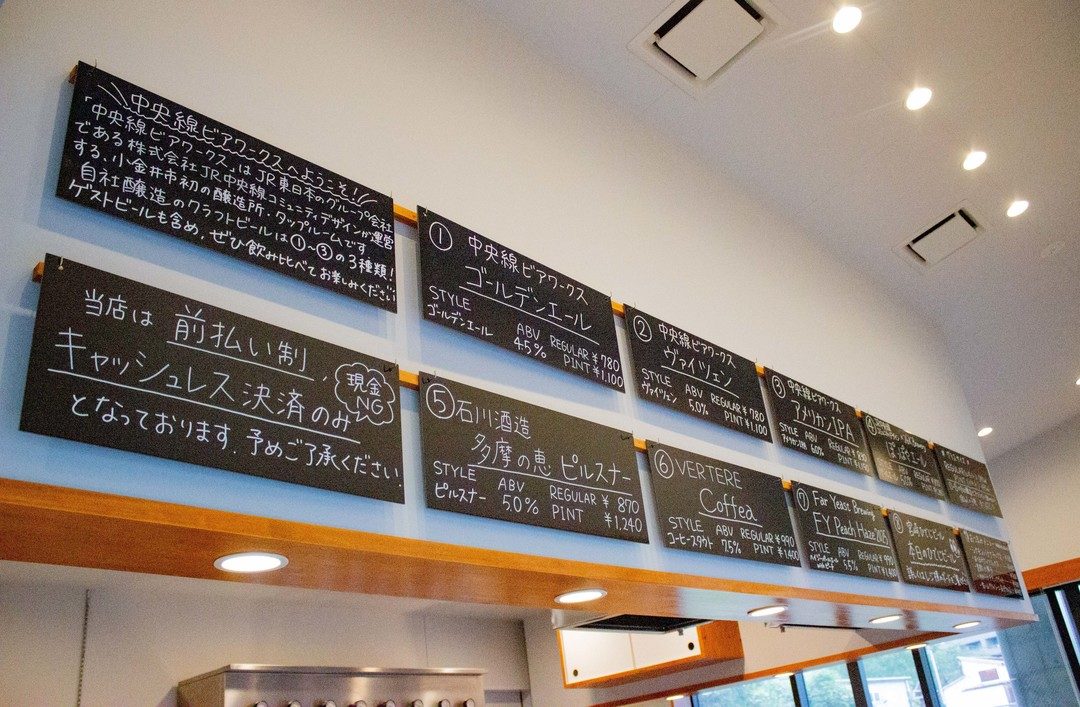 中央線ビアワークスへようこそ!
「中央線ビアワークス」はJR東日本のグループ会社
である株式会社JR中央線コミュニティデザインが運営
する、小金井市初の醸造所・タップルームです
自社醸造のクラフトビールは①〜③の3種類!
ゲストビールも含め、ぜひ飲み比べてお楽しみください
① 中央線ビアワークス
ゴールデンエール
STYLE ABV REGULAR ¥780
ゴールデンエール 4.5% PINT ¥1,100
② 中央線ビアワークス
ヴァイツェン
STYLE ABV REGULAR ¥780
ヴァイツェン 5.0% PINT ¥1,100
③ 中央線ビアワークス
アメリカンIPA
STYLE ABV REGULAR
アメリカンIPA 6.0% PINT
当店は 前払い制、
キャッシュレス決済のみ
現金
NG
となっております。予めご了承ください
⑤ 石川酒造
多摩の恵 ピルスナー
STYLE ABV REGULAR ¥870
ピルスナー 5.0% PINT ¥1,240
⑥ VERTERE
Coffea
STYLE ABV REGULAR ¥990
コーヒースタウト 7.5% PINT ¥1,400
⑦ Far Yeast Brewing
FY Peach Haze
STYLE ABV REGULAR ¥990
5.5% PINT
本日のひでじビール